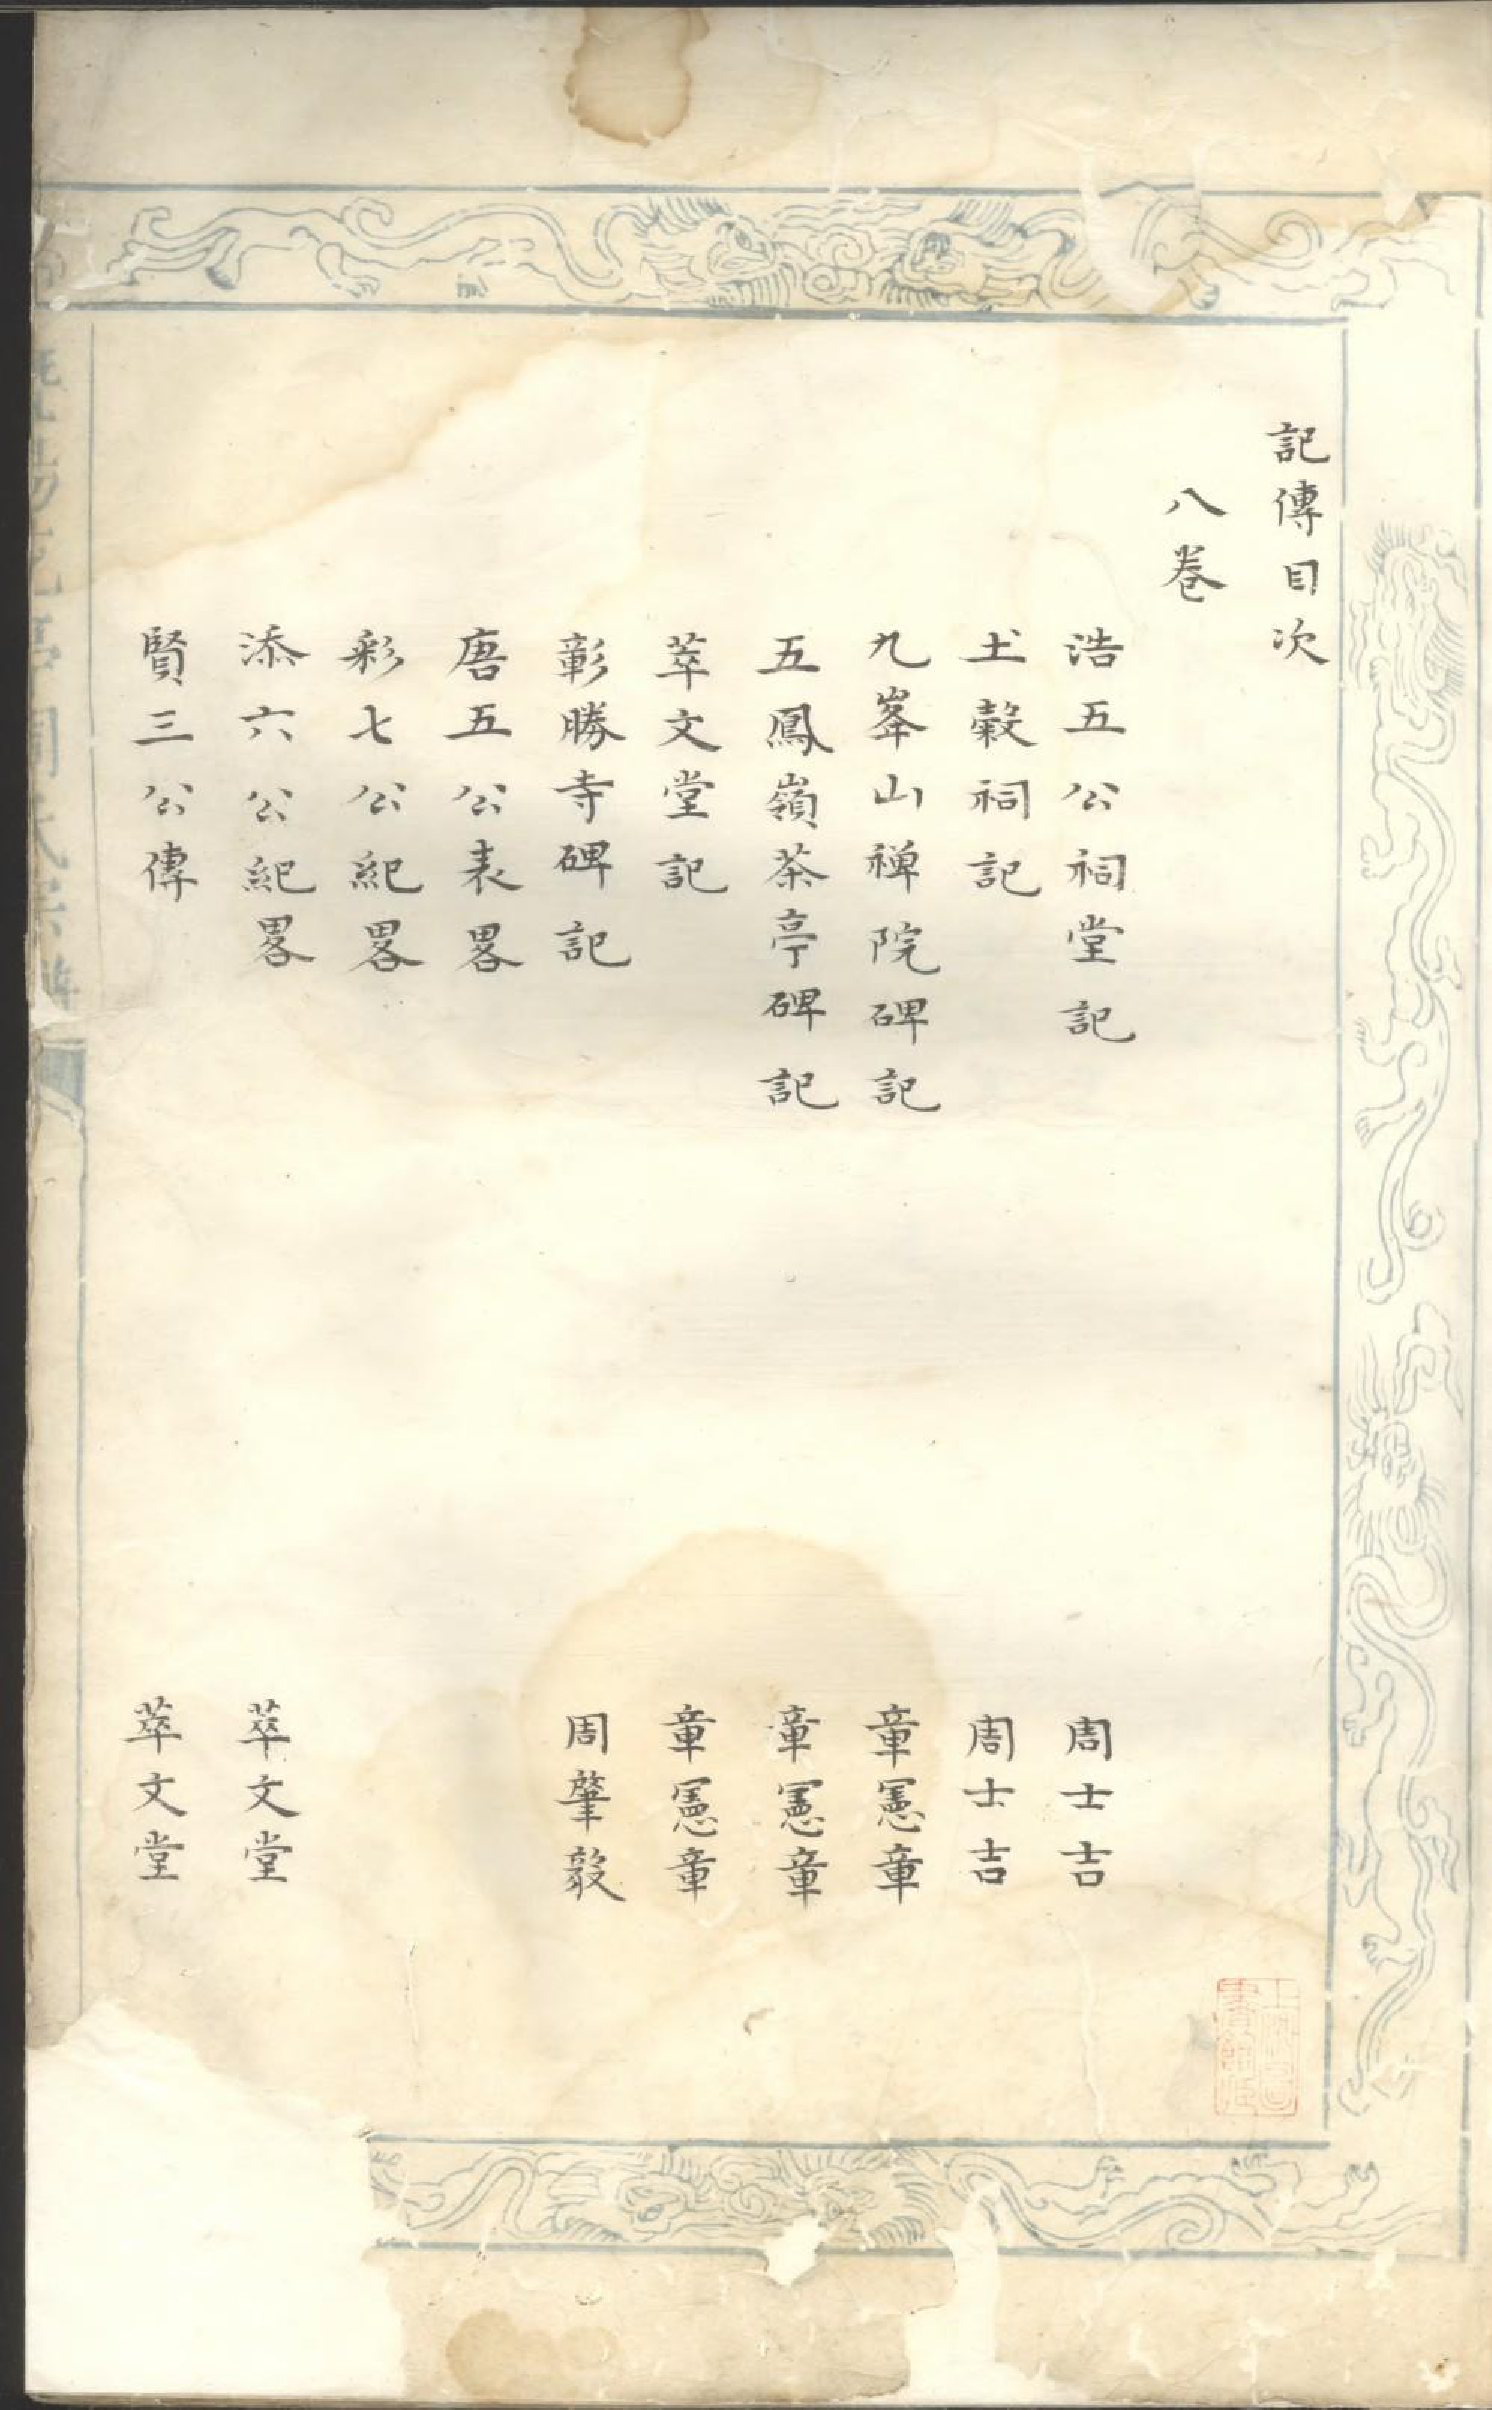 記傳目次
八卷
浩五公祠堂記 周士吉
土穀祠記 周士吉
九峯山禪院碑記 章憲章
五鳳嶺茶亭碑記 章憲章
萃文堂記 章憲章
彰勝寺碑記 周肇毅
唐五公表畧
彩七公紀畧
添六公紀畧 萃文堂
賢三公傳 萃文堂